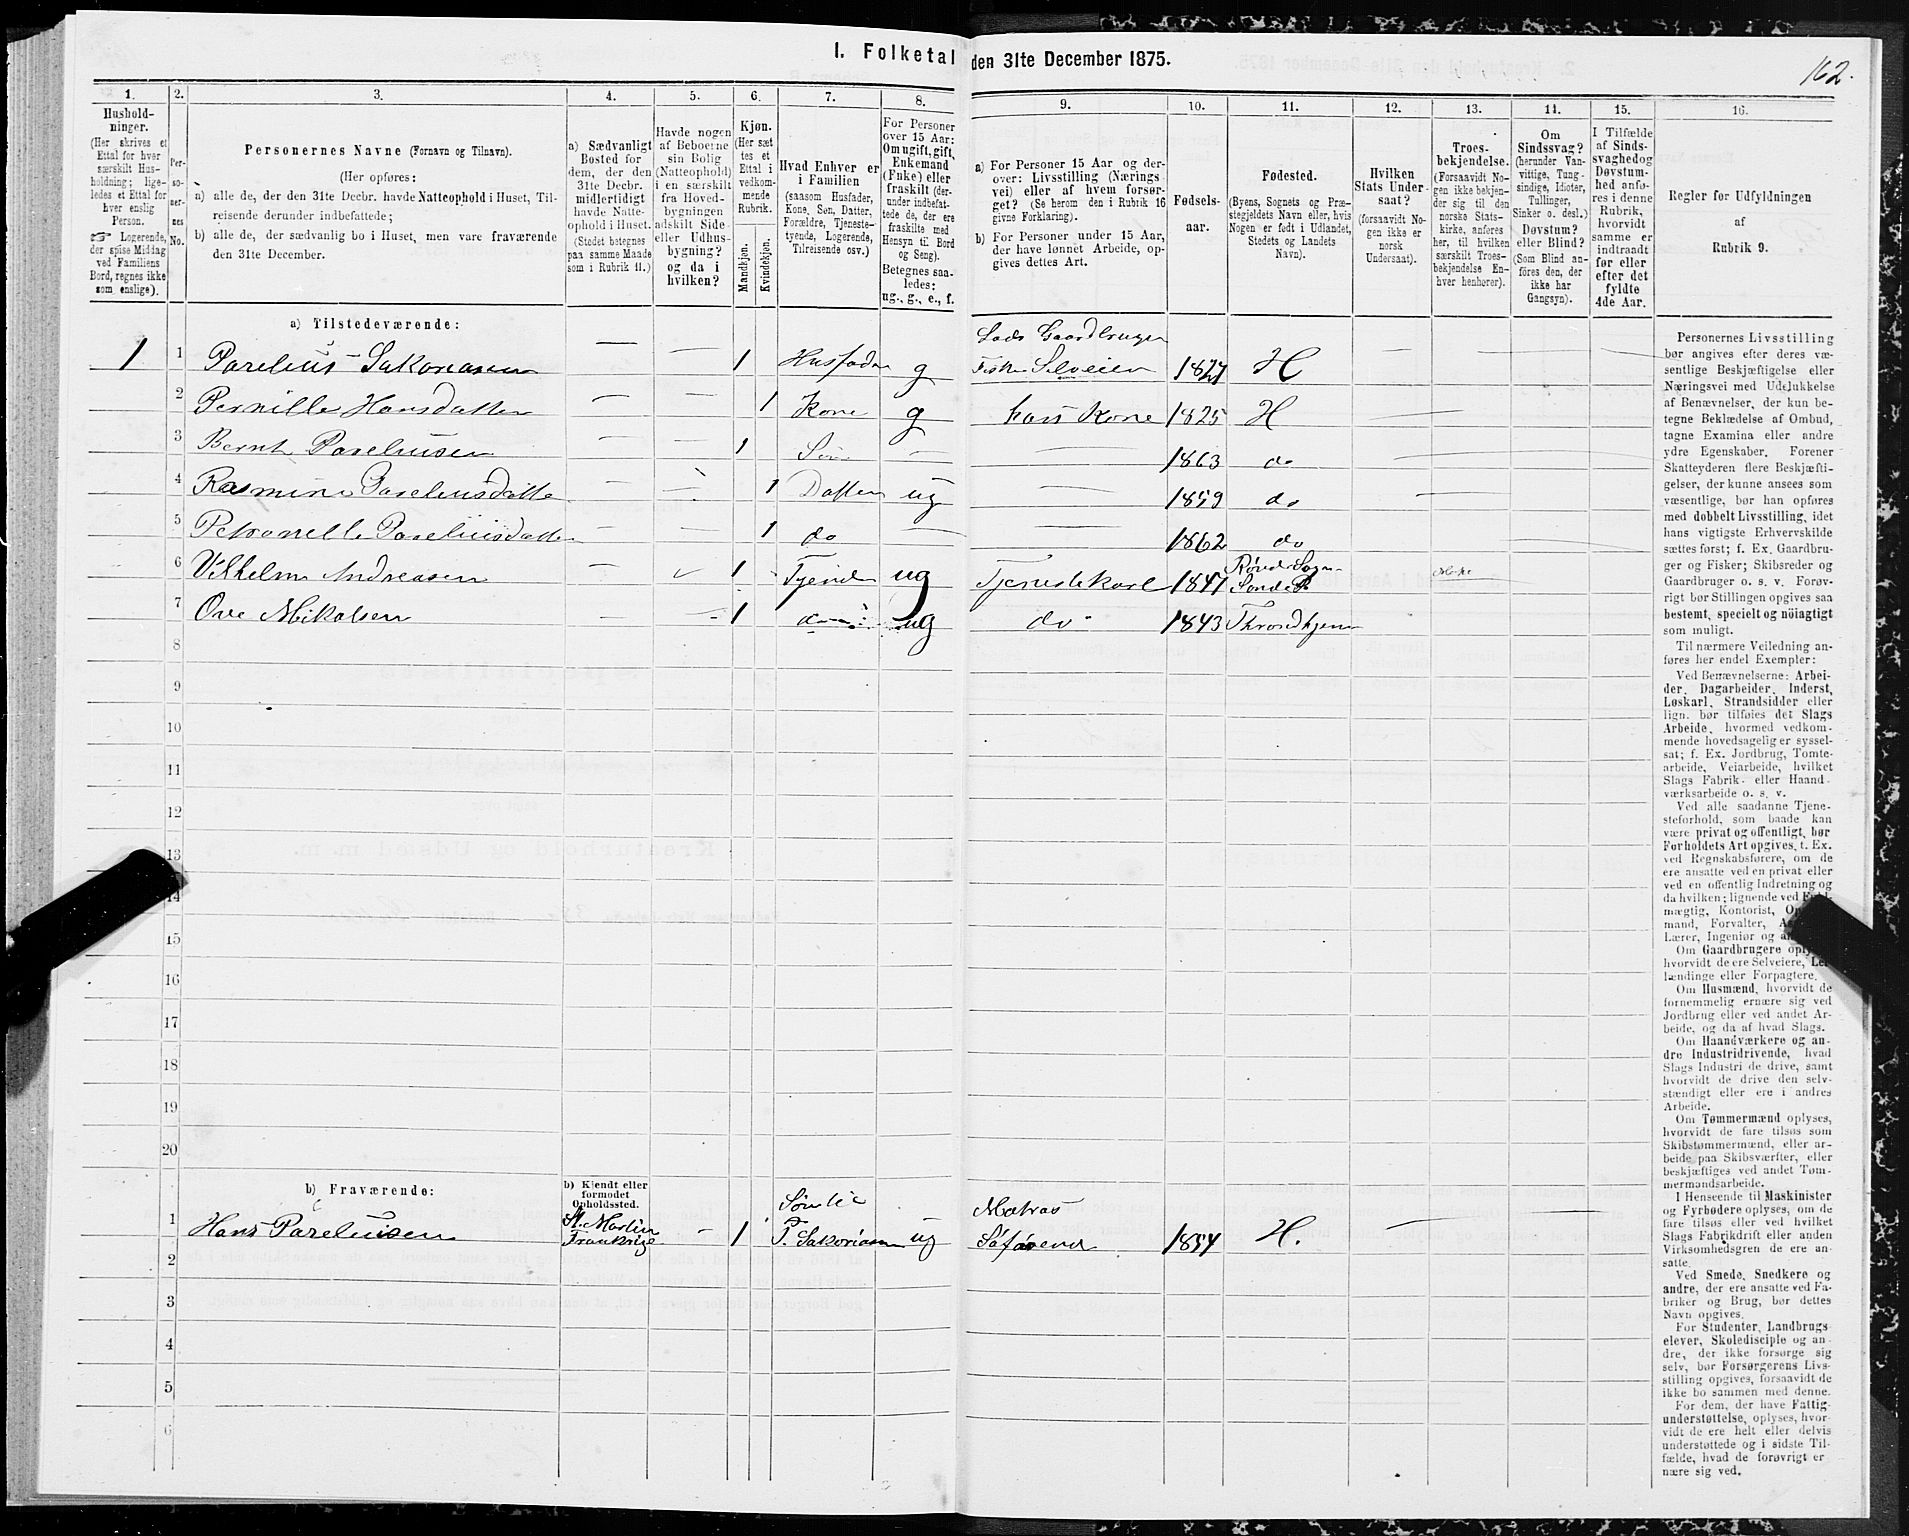 I. Folketal den 31te December 1875.
162.
1. 2. 3. 4. 5. 6. 7. 8. 9. 10. 11. 12. 13. 14. 15. 16.
Hushold-
ninger.
(Her skrives et
Ettal for hver
særskilt Hus-
holdning; lige-
ledes et Ettal for
hver enslig
Person.
☞ Logerende,
der spise Middag
ved Familiens
Bord, regnes ikke
som enslige).
Per-
so-
ner-
nes
No.
Personernes Navne (Fornavn og Tilnavn).
(Her opføres:
a) alle de, der den 31te Decbr. havde Natteophold i Huset, Til-
reisende derunder indbefattede;
b) alle de, der sædvanlig bo i Huset, men vare fraværende
den 31te December.
a) Sædvanligt
Bosted for
dem, der den
31te Decbr.
midlertidigt
havde Natte-
ophold i Huset.
(Stedet betegnes
paa samme Maade
som i Rubrik 11.)
Havde nogen
af Beboerne
sin Bolig
(Natteophold)
i en særskilt
fra Hoved-
bygningen
adskilt Side-
eller Udhus-
bygning?
og da i
hvilken?
Kjøn.
(Her sæt
tes et
Ettal i
vedkom-
mende
Rubrik.
Mandkjøn.
Kvindekjøn.
Hvad Enhver er
i Familien
(saasom Husfader,
Kone, Søn, Datter,
Forældre, Tjeneste-
tyende, Logerende,
Tilreisende osv.)
For Personer
over 15 Aar:
Om ugift, gift,
Enkemand
(Enke) eller
fraskilt (der-
under indbefat-
tede de, der ere
fraskilte med
Hensyn til Bord
og Seng).
Betegnes saa-
ledes:
ug., g., e., f.
a) For Personer 15 Aar og der-
over: Livsstilling (Nærings-
vei) eller af hvem forsør-
get? (Se herom den i Rubrik 16
givne Forklaring).
b) For Personer under 15 Aar,
der have lønnet Arbeide, op-
gives dettes Art.
Fødsels-
aar.
Fødested.
(Byens, Sognets og Præ-
stegjeldets Navn eller, hvis
Nogen er født i Udlandet,
Stedets og Landets
Navn).
Hvilken
Stats Under-
saat?
(forsaavidt No-
gen ikke er
norsk
Undersaat).
Troes-
bekjendelse.
(Forsaavidt No-
gen ikke bekjen-
der sig til den
norske Stats-
kirke, anføres
her, til hvilken
særskilt Troes-
bekjendelse En-
hver henhører).
Om
Sindssvag?
(herunder Van-
vittige, Tung-
sindige, Idioter,
Tullinger,
Sinker o. desl.)
Døvstum?
eller Blind?
(Som Blind an-
føres den, der
ikke har
Gangsyn).
I Tilfælde
af Sinds-
svaghed og
Døvstum-
hed anfø-
res i denne
Rubrik,
hvorvidt
samme er
indtraadt
før eller
efter det
fyldte
4de Aar.
Regler for Udfyldningen
af
Rubrik 9.
a) Tilstedeværende:
Lods Gaardbruger
1 1 Parelius Sakoriasen — — 1 Husfader g Fisker Selveier 1827 H
2 Pernille Hansdatter — — 1 Kone g hans Kone 1825 H
3 Bernt Pareliusen — — 1 Søn — 1863 do
4 Rasmine Pareliusdatte — — 1 Datter ug — 1859 do
5 Petronelle Pareliusdatter — — 1 do — — 1862 do
6 Vilhelm Andreasen — 1 Tjener ug Tjenestekarl 1847
7 Ove Mikalsen — — 1 do ug do 1843 Throndhjem
8
9
10
11
12
13
14
15
16
17
18
19
20
b) Fraværende:
b) Kjendt eller
formodet
Opholdssted.
1 Hans Pareliusen St. Martin Frankrige — 1 Søn til P. Sakoriasen ug Matros Søfarende 1854 H.
2
3
4
5
6
Personernes Livsstilling
bør angives efter deres væ-
sentlige Beskjæftigelse eller
Næringsvei med Udelukkelse
af Benævnelser, der kun be-
tegne Beklædelse af Ombud,
tagne Examina eller andre
ydre Egenskaber. Forener
Skatteyderen flere Beskjæfti-
gelser, der kunne ansees som
væsentlige, bør han opføres
med dobbelt Livsstilling, idet
hans vigtigste Erhvervskilde
sættes først; f. Ex. Gaardbru-
ger og Fisker; Skibsreder og
Gaardbruger o. s. v. Forøv-
rigt bør Stillingen opgives saa
bestemt, specielt og nöiagtigt
som muligt.
Til nærmere Veiledning an-
føres her endel Exempler:
Ved Benævnelserne: Arbei-
der, Dagarbeider, Inderst,
Løskarl, Strandsidder eller
lign. bør tilføies det Slags
Arbeide, hvormed vedkom-
mende hovedsagelig er syssel-
sat; f. Ex. Jordbrug, Tomte-
arbeide, Veiarbeide, hvilket
Slags Fabrik- eller Haand-
værksarbeide o. s. v.
Ved alle saadanne Tjene-
steforhold, som baade kan
være privat og offentligt, bør
Forholdets Art opgives, t. Ex.
ved Regnskabsførere, om de
ere ansatte ved en privat eller
ved en offentlig Indretning og
da hvilken; lignende ved
mægtig, Kontorist,
mand, Forvalter,
Lærer, Ingeniør og
Om Gaardbrugere
hvorvidt de ere Selveiere,
lændinge eller Forpagtere.
Om Husmænd, hvorvidt de
fornemmelig ernære sig ved
Jordbrug eller ved andet Ar-
beide, og da af hvad Slags.
Om Haandværkere og an-
dre Industridrivende, hvad
Slags Industri de drive, samt
hvorvidt de drive den selv-
stændigt eller ere i andres
Arbeide.
Om Tømmermænd oplyses,
hvorvidt de fare tilsøs som
Skibstømmermænd, eller ar-
beide paa Skibsværfter, eller
beskjæftiges ved andet Tøm-
mermandsarbeide.
I Henseende til Maskinister
og Fyrbødere oplyses, om de
fare tilsøs eller ved hvilket
Slags Fabrikdrift eller anden
Virksomhedsgren de ere an-
satte.
Ved Smede, Snedkere og
andre, der ere ansatte ved Fa-
briker og Brug, bør dettes
Navn opgives.
For Studenter, Landbrugs-
elever, Skoledisciple og an-
dre, der ikke forsørge sig
selv, bør Forsørgerens Livs-
stilling opgives, forsaavidt de
ikke bo sammen med denne.
For dem, der have Fattig-
understøttelse, oplyses, hvor-
vidt de ere helt eller delvis
understøttede og i sidste Til-
fælde, hvad de forøvrigt er-
nære sig ved.